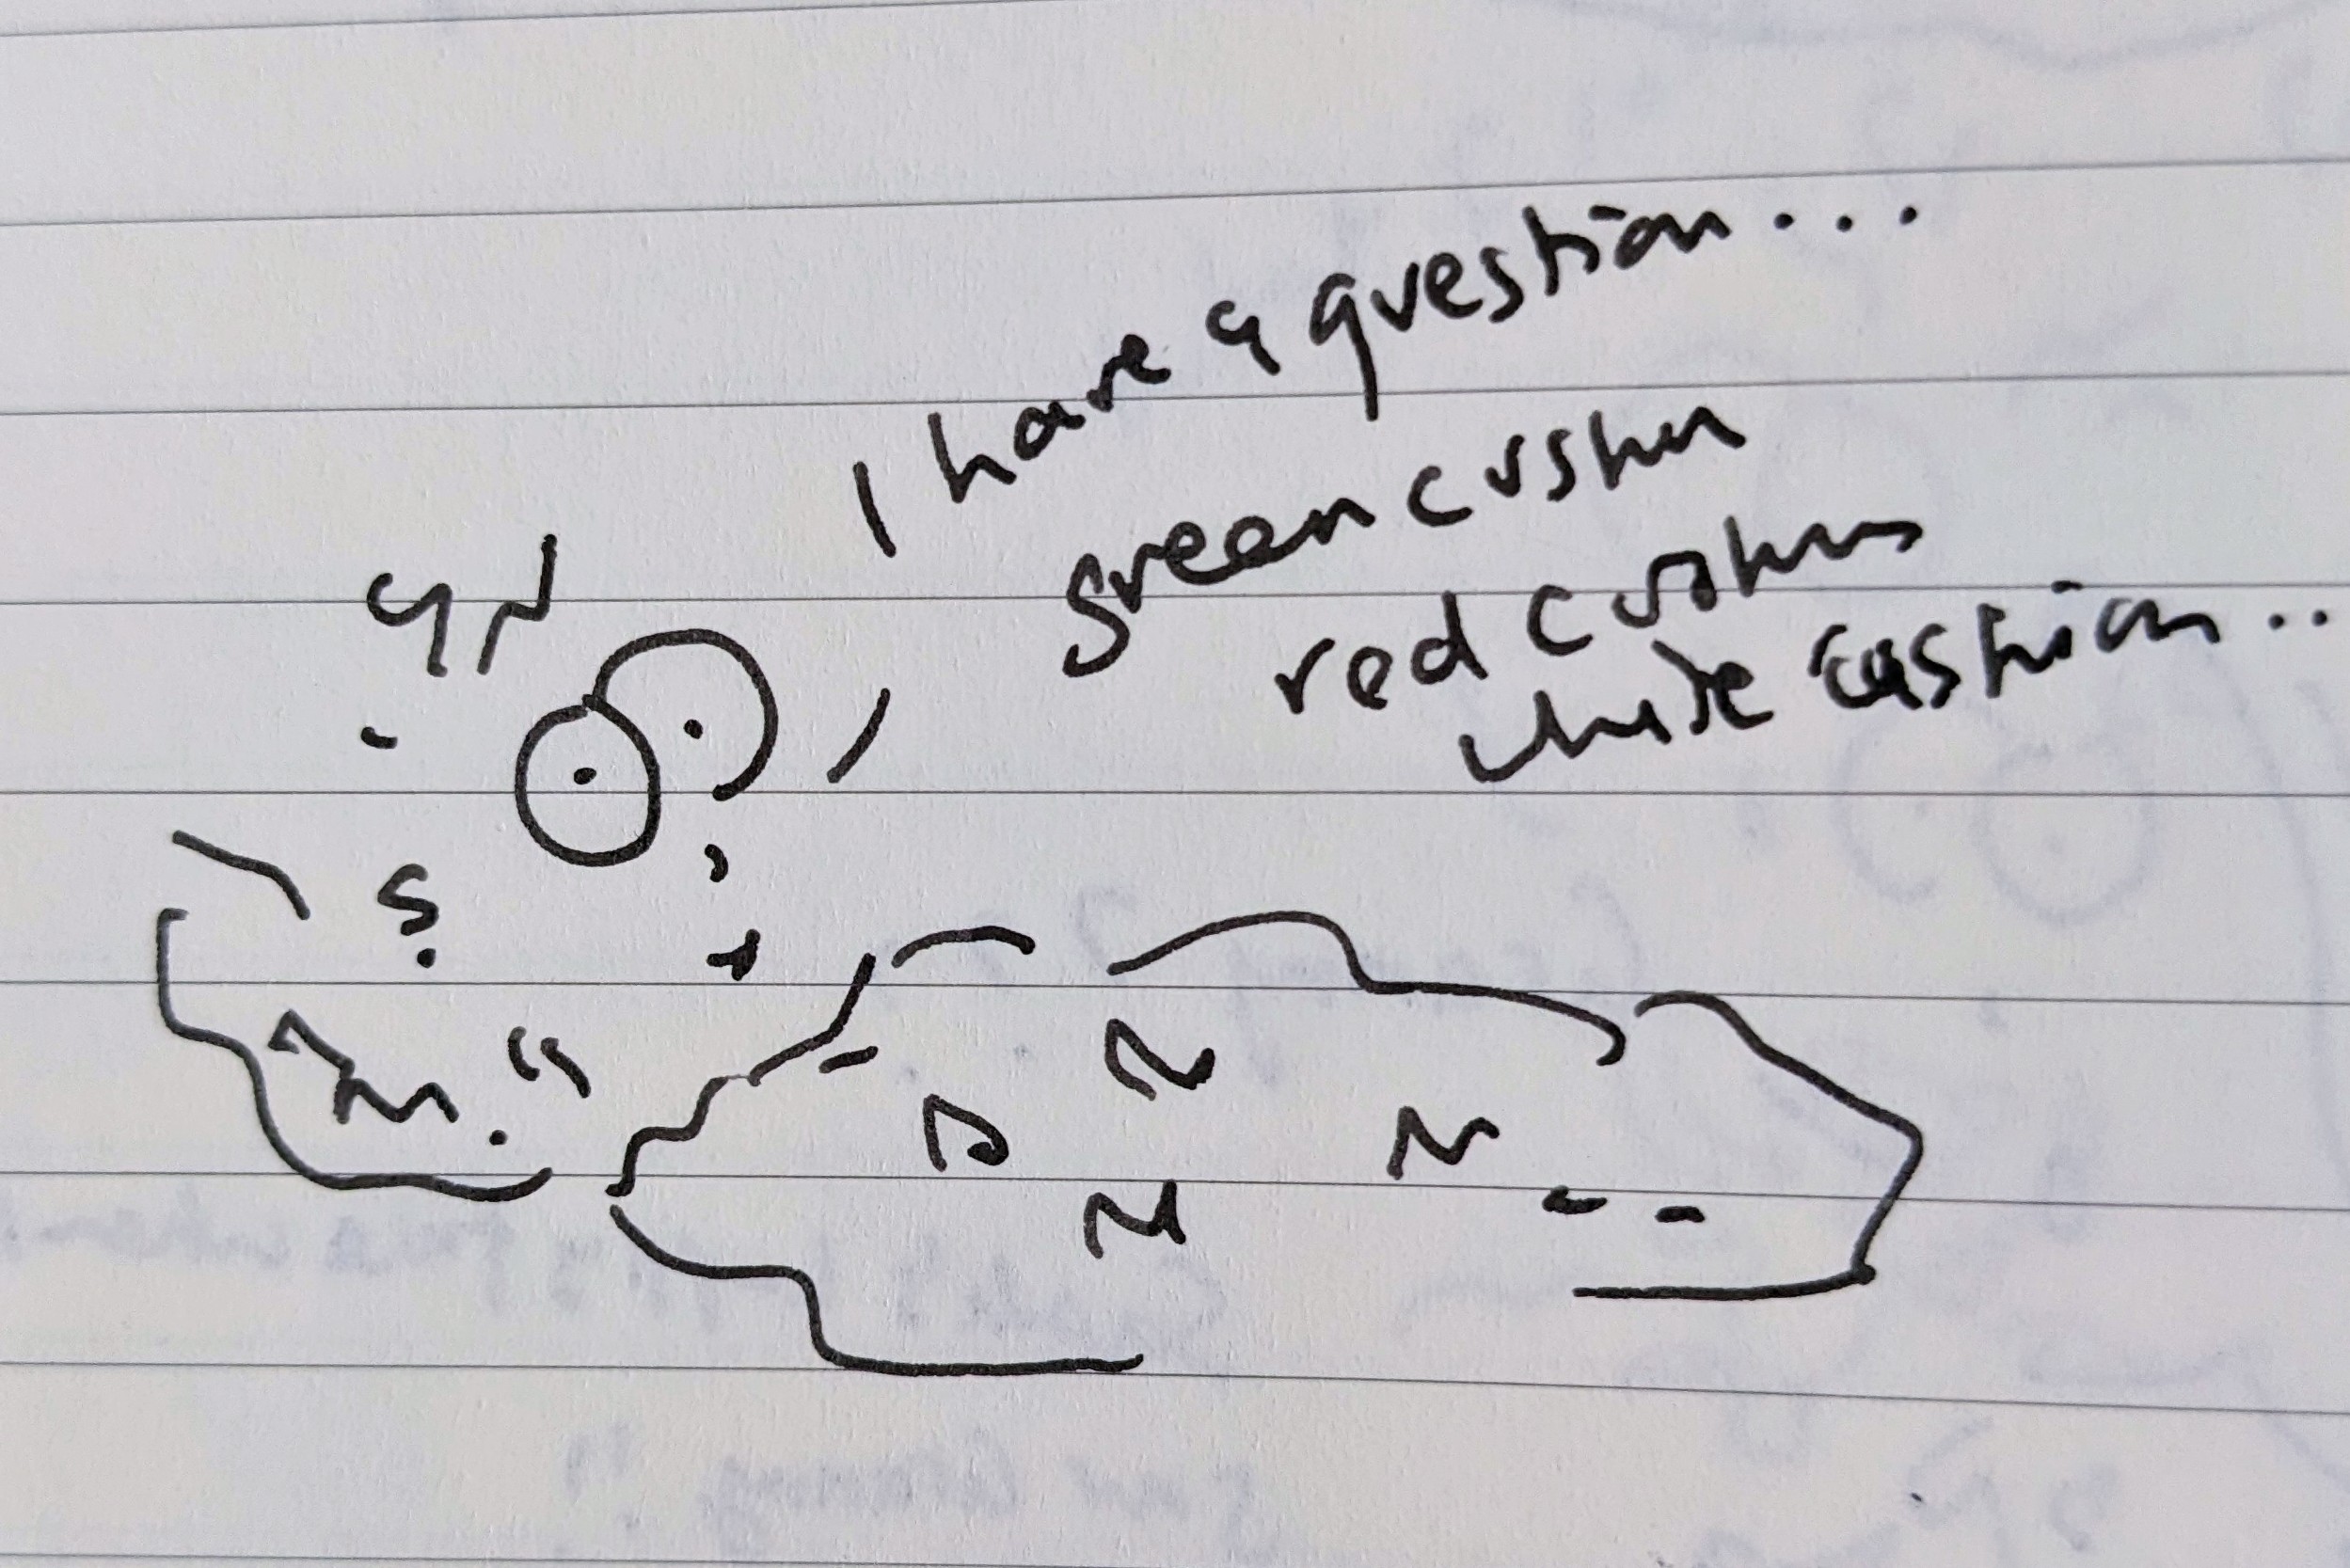 I have a question...
green cushion
red cushion
white cushion..